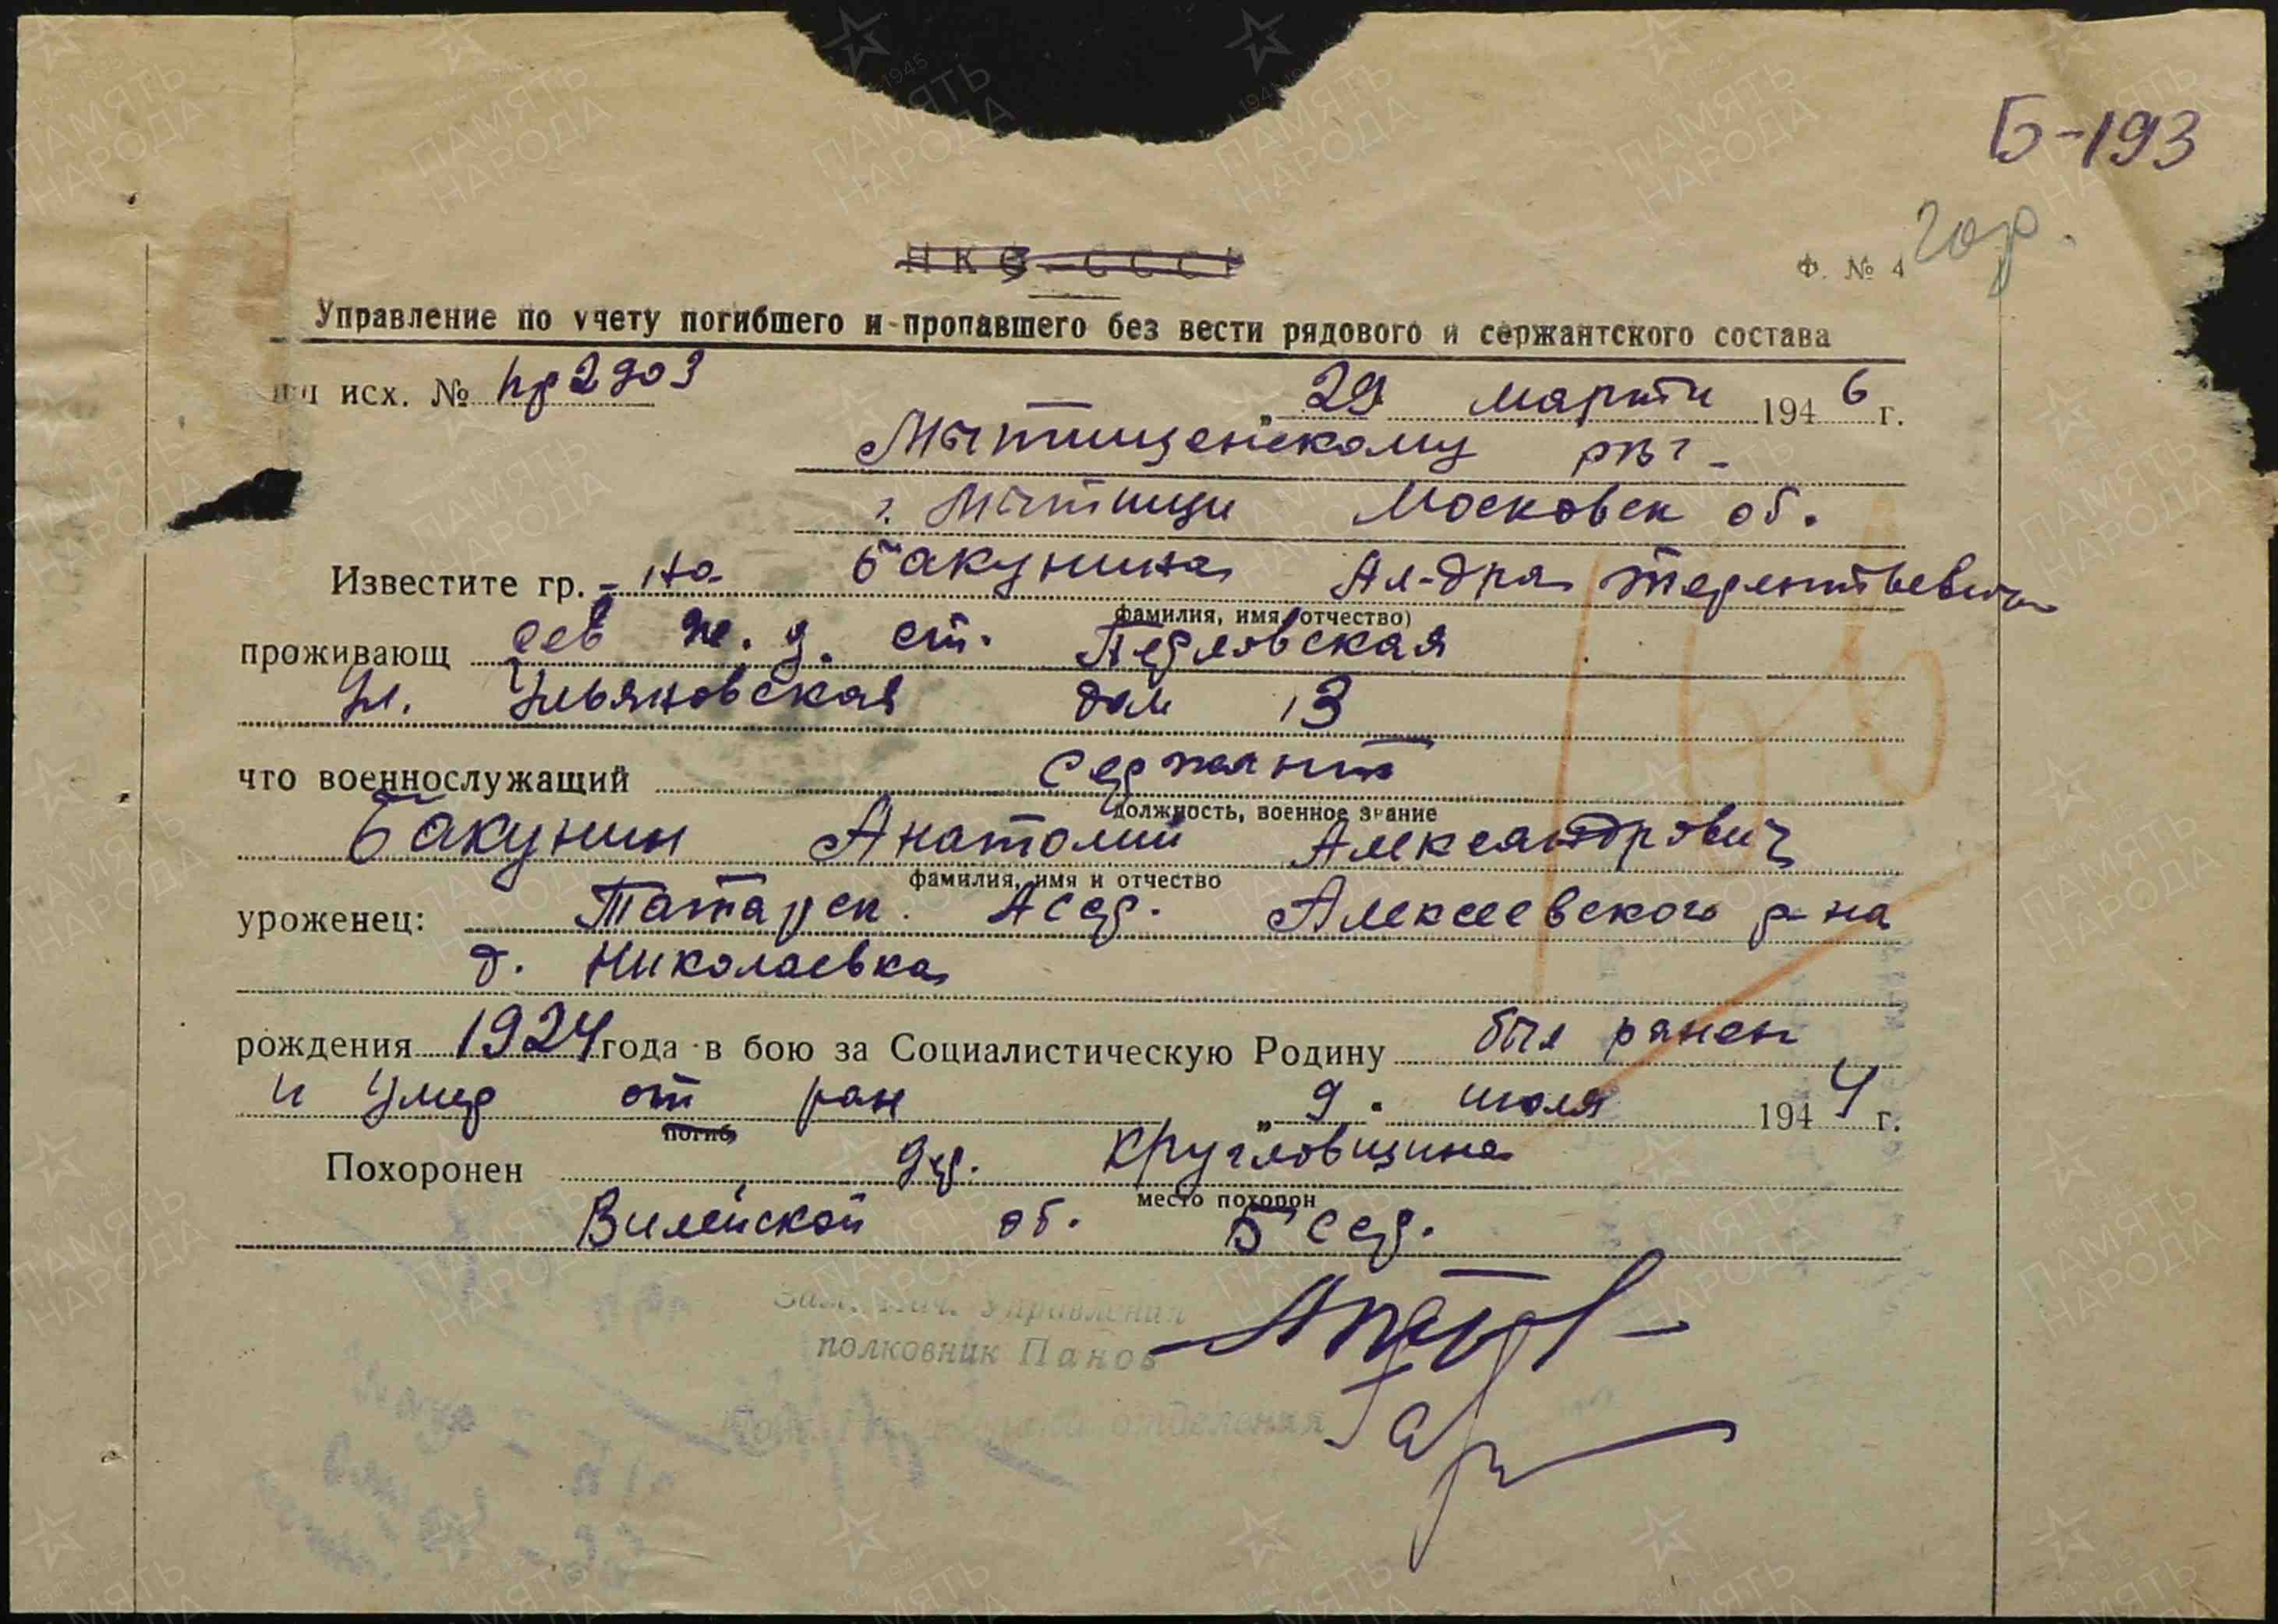 Б-193
гор.
НКО СССР
Ф. № 4
Управление по учету погибшего и пропавшего без вести рядового и сержантского состава
исх. № нр 2903
„29 марта 1946 г.
Мытищенскому рвк
г. Мытищи Московск об.
Известите гр.-на Бакунина Ал-дра Терентьевича
фамилия, имя, отчество)
проживающ сев ж. д. ст. Перловская
ул. Ульяновская дом 13
что военнослужащий сержант
должность, военное звание
Бакунин Анатолий Александрович
фамилия, имя и отчество
уроженец: Татарск. АССР. Алексеевского р-на
д. Николаевка
рождения 1924 года в бою за Социалистическую Родину был ранен
и умер от ран „9. июля 1944 г.
погиб
Похоронен дер. Кругловщина
место похорон
Вилейской об. БССР.
Зам. Нач. Управления
полковник Панов
отделения
ПАМЯТЬ НАРОДА
1941-1945